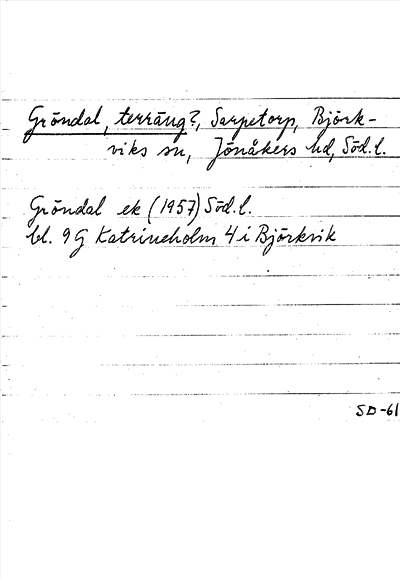 Gröndal, terräng?, Sarpetorp, Björk-
viks sn, Jönåkers hd, Söd.l.
Gröndal ek (1957) Söd.l.
bl. 9G Katrineholm 4 i Björkvik
SD-61